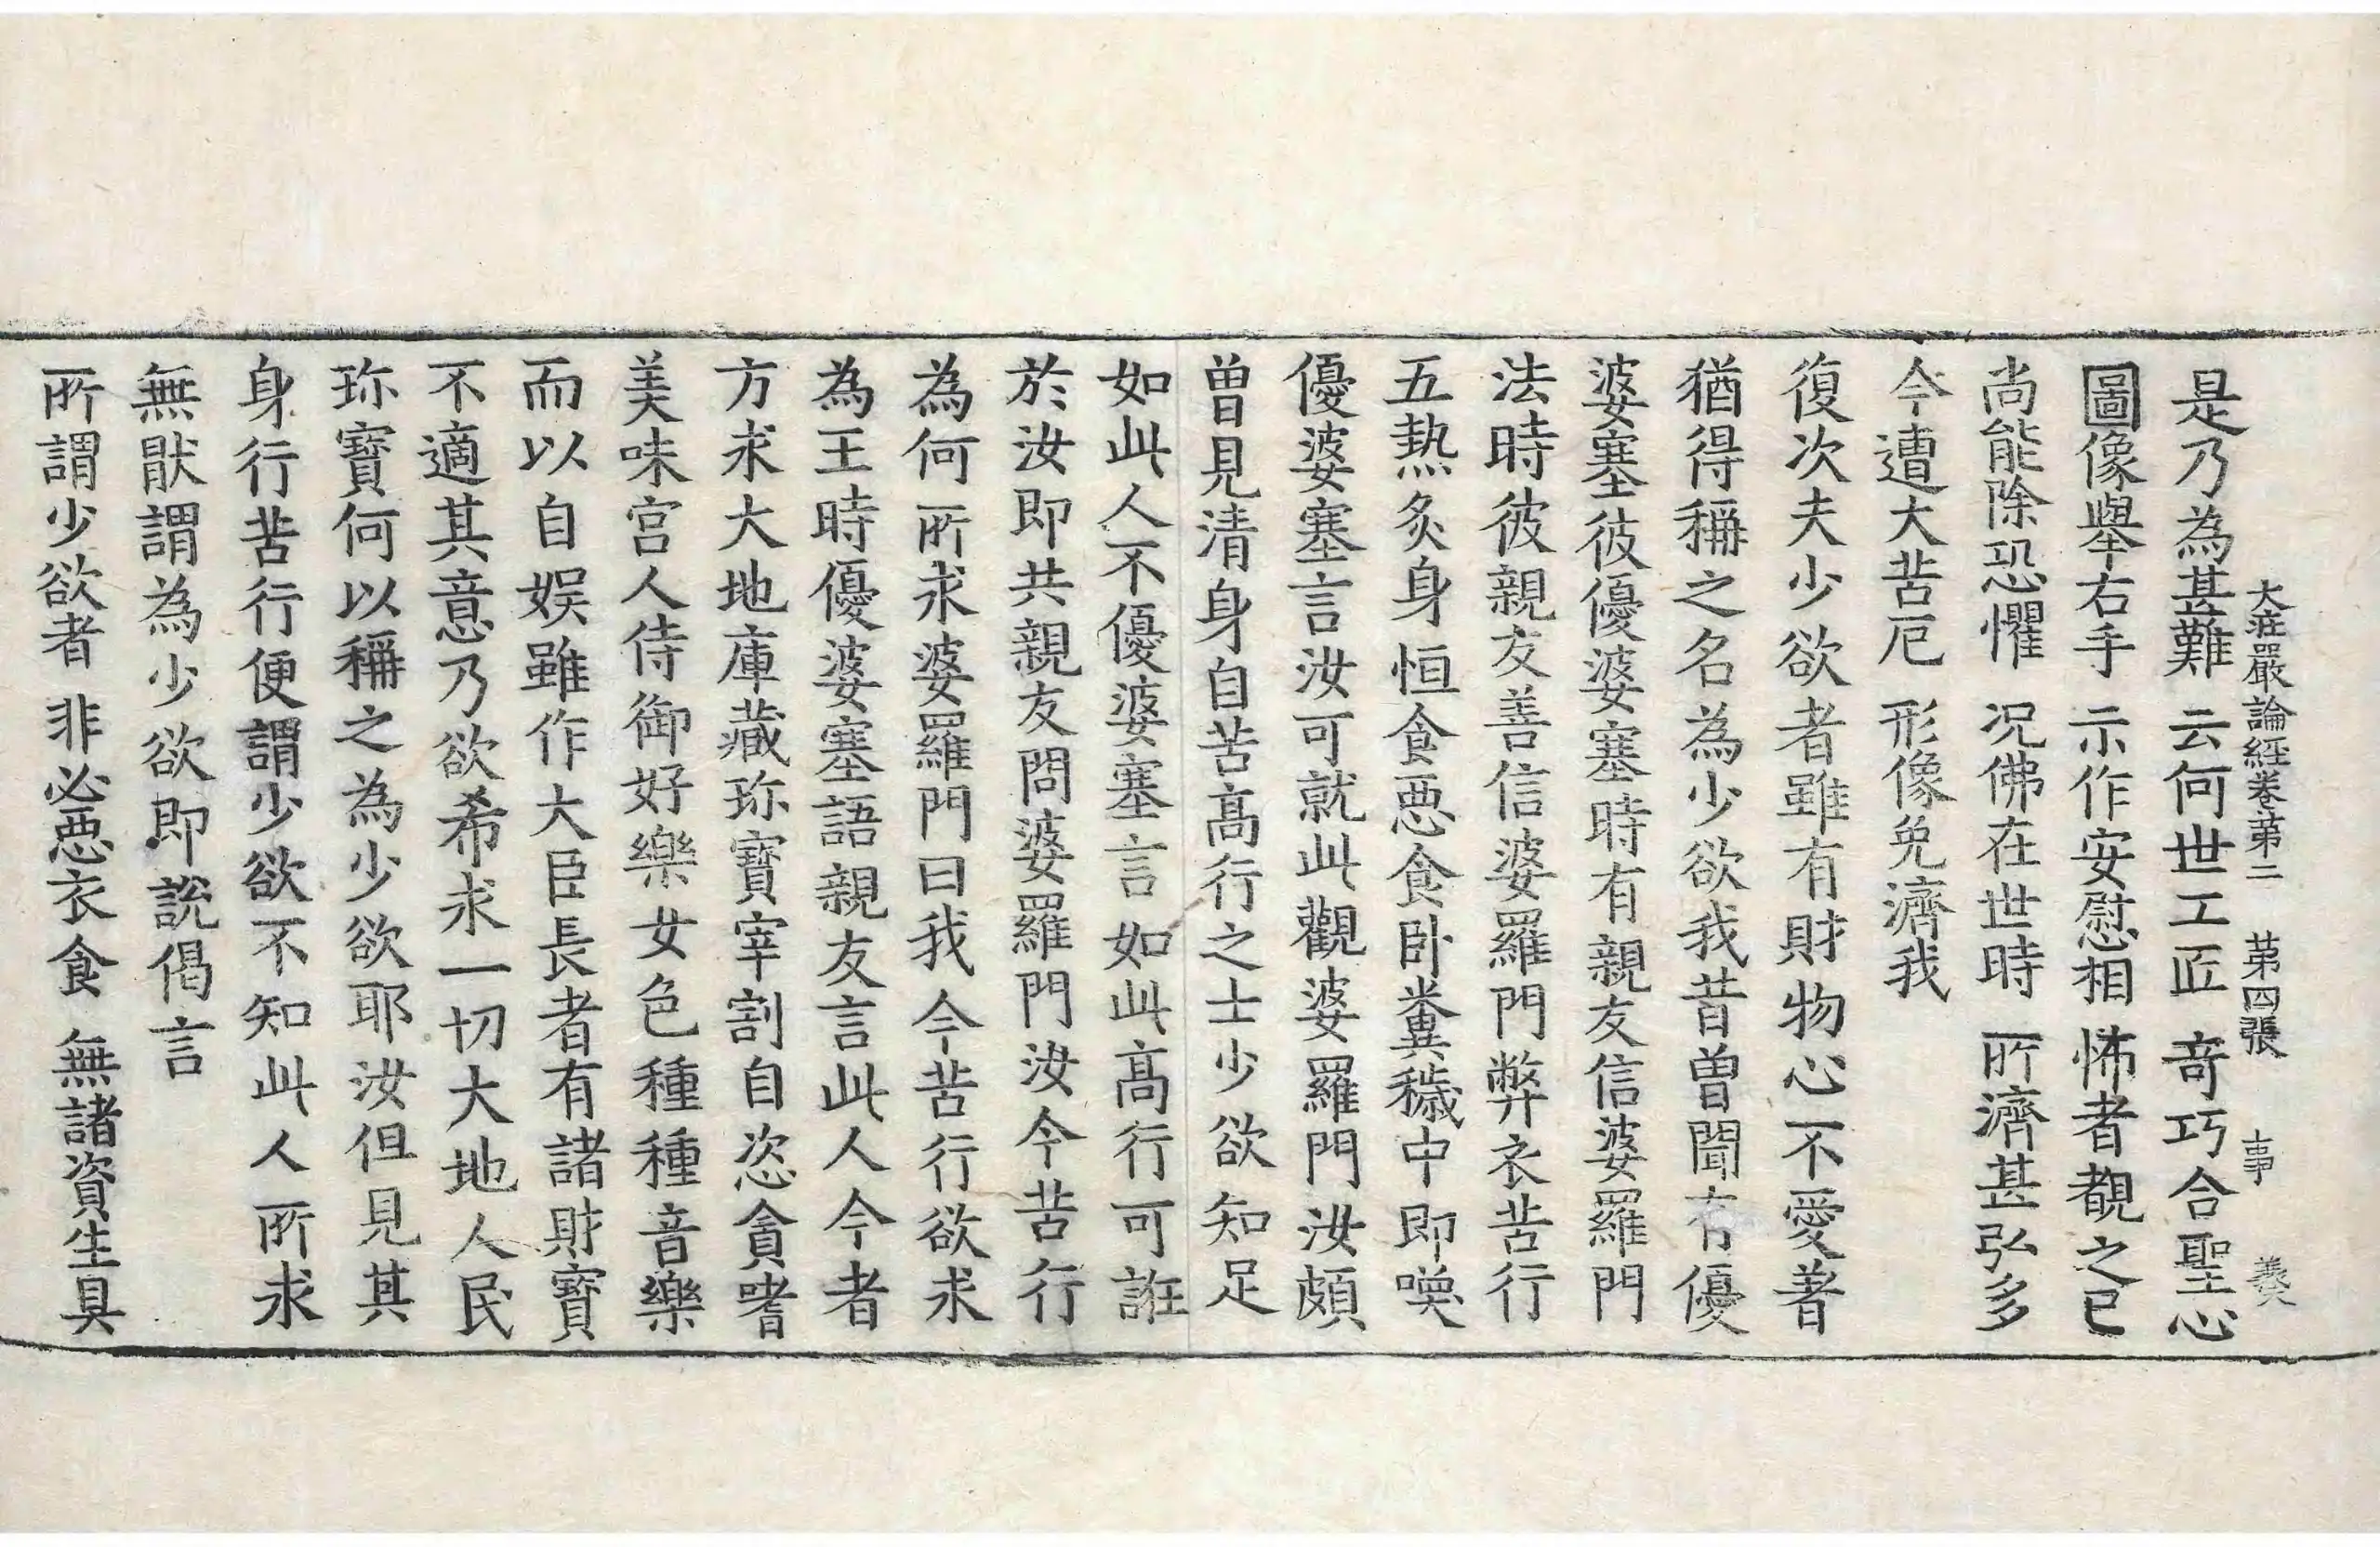 大莊嚴論經卷第二 第四張 事 羲
是乃為甚難 云何世工匠 奇巧合聖心
圖像舉右手 示作安慰相 怖者覩之已
尚能除恐懼 況佛在世時 所濟甚弘多
今遭大苦厄 形像免濟我
復次夫少欲者雖有財物心不愛著
猶得稱之名為少欲我昔曾聞有優
婆塞彼優婆塞時有親友信婆羅門
法時彼親友善信婆羅門弊衣苦行
五熱炙身恒食惡食卧糞穢中即喚
優婆塞言汝可就此觀婆羅門汝頗
曾見清身自苦高行之士少欲知足
如此人不優婆塞言如此高行可誑
於汝即共親友問婆羅門汝今苦行
為何所求婆羅門曰我今苦行欲求
為王時優婆塞語親友言此人今者
方求大地庫藏珎寶宰割自恣貪嗜
美味宮人侍御好樂女色種種音樂
而以自娛雖作大臣長者有諸財寶
不適其意乃欲希求一切大地人民
珎寶何以稱之為少欲耶汝但見其
身行苦行便謂少欲不知此人所求
無猒謂為少欲即說偈言
所謂少欲者 非必惡衣食 無諸資生具